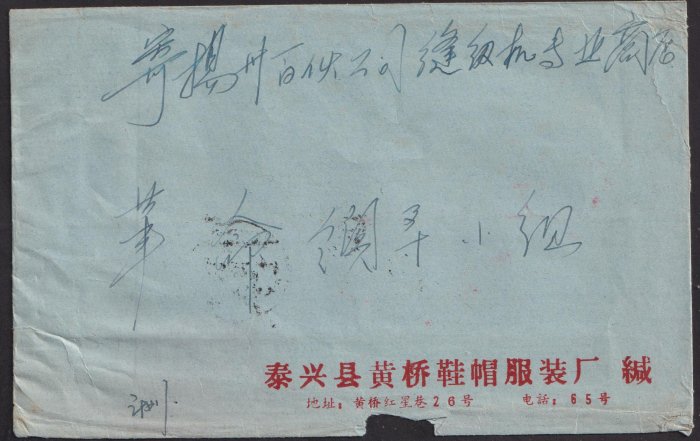 寄扬州百伙公司缝纫机专业商店
革命领导小组
泰兴县黄桥鞋帽服装厂 缄
地址：黄桥红星巷26号 电话：65号